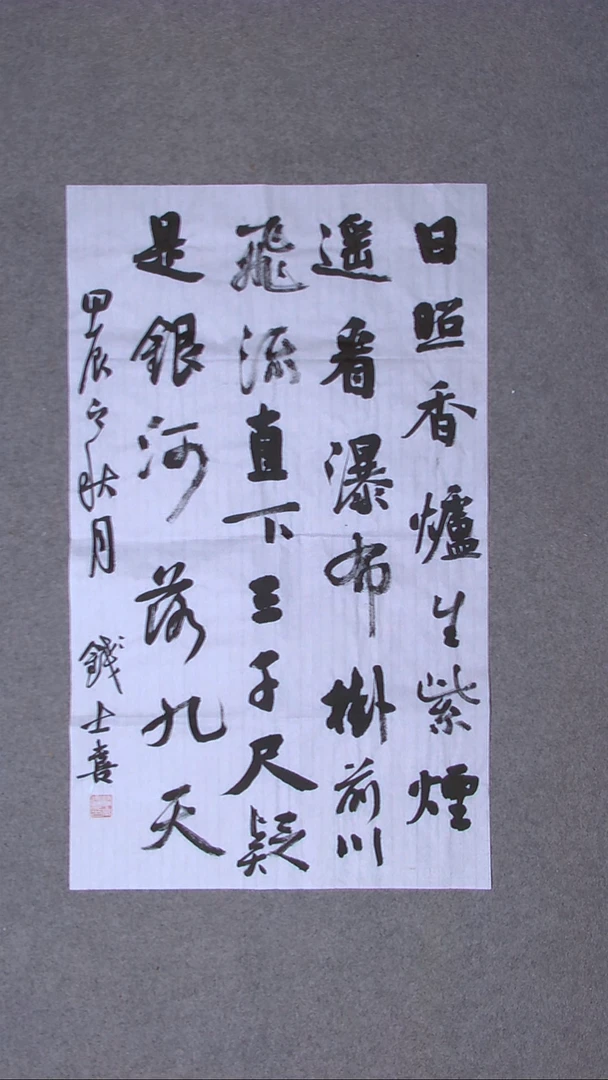 日照香爐生紫煙
遥看瀑布掛前川
飛流直下三千尺疑
是銀河落九天
甲辰之秋月 錢士喜